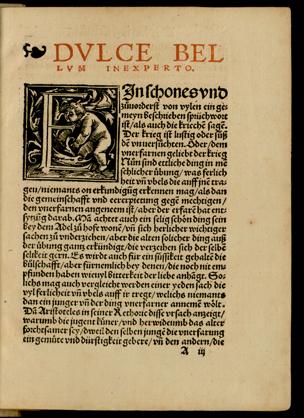 DVLCE BEL
LVM INEXPERTO.
EJn schones vnd
zůuorderst von vylen ein ge
meyn beschrieben sprüchwort
ist/ als auch die kriechē sagē.
Der krieg ist lustig oder süß
dē vnuersůchten. Oder/ dem
vnerfarnen geliebt der krieg
Nūn sind ettliche ding in mē
schlicher übung/ was ferlich
heit vn̄ vbels die auff jnē tra
gen/ niemants on erkundigūg erkennen mag/ als dan
die gemeinschafft vnd eererpietung gegē mechtigen/
den vnerfarnen angenem ist/ aber der erfarē hat ent-
sytzūg darab. Mā achtet auch ein selig schōn ding sein
bey dem Adel zů hofe wonē/ vn̄ sich herlicher wichtiger
sachen zů vnderziehen/ aber die alten solicher ding auß
der übung gantz erkündigt/ die verzyhen sich der selbē
seligkeit gern. Es wirdt auch für ein süssikeit gehaltē die
bůlschafft/ aber fürnemlich bey denen/ die noch nit em
pfunden haben wieuyl bitterkeit der liebe anhāgt. So
lichs mag auch vergleicht werden einer yeden sach die
vyl ferlicheit vn̄ vbels auff ir tregt/ welichs niemants
dan ein junger vn̄ der ding vnerfarner annemē wölt.
Dā Aristoteles in seiner Rethoric disse vrsach anzeigt/
warumb die jugent küner/ vnd herwiderumb das alter
forchtsamer sey/ dweil den selben jungē die vnerfarung
ein gemüte vnd dürstigkeit gebere/ vn̄ den andern/ die
A iij